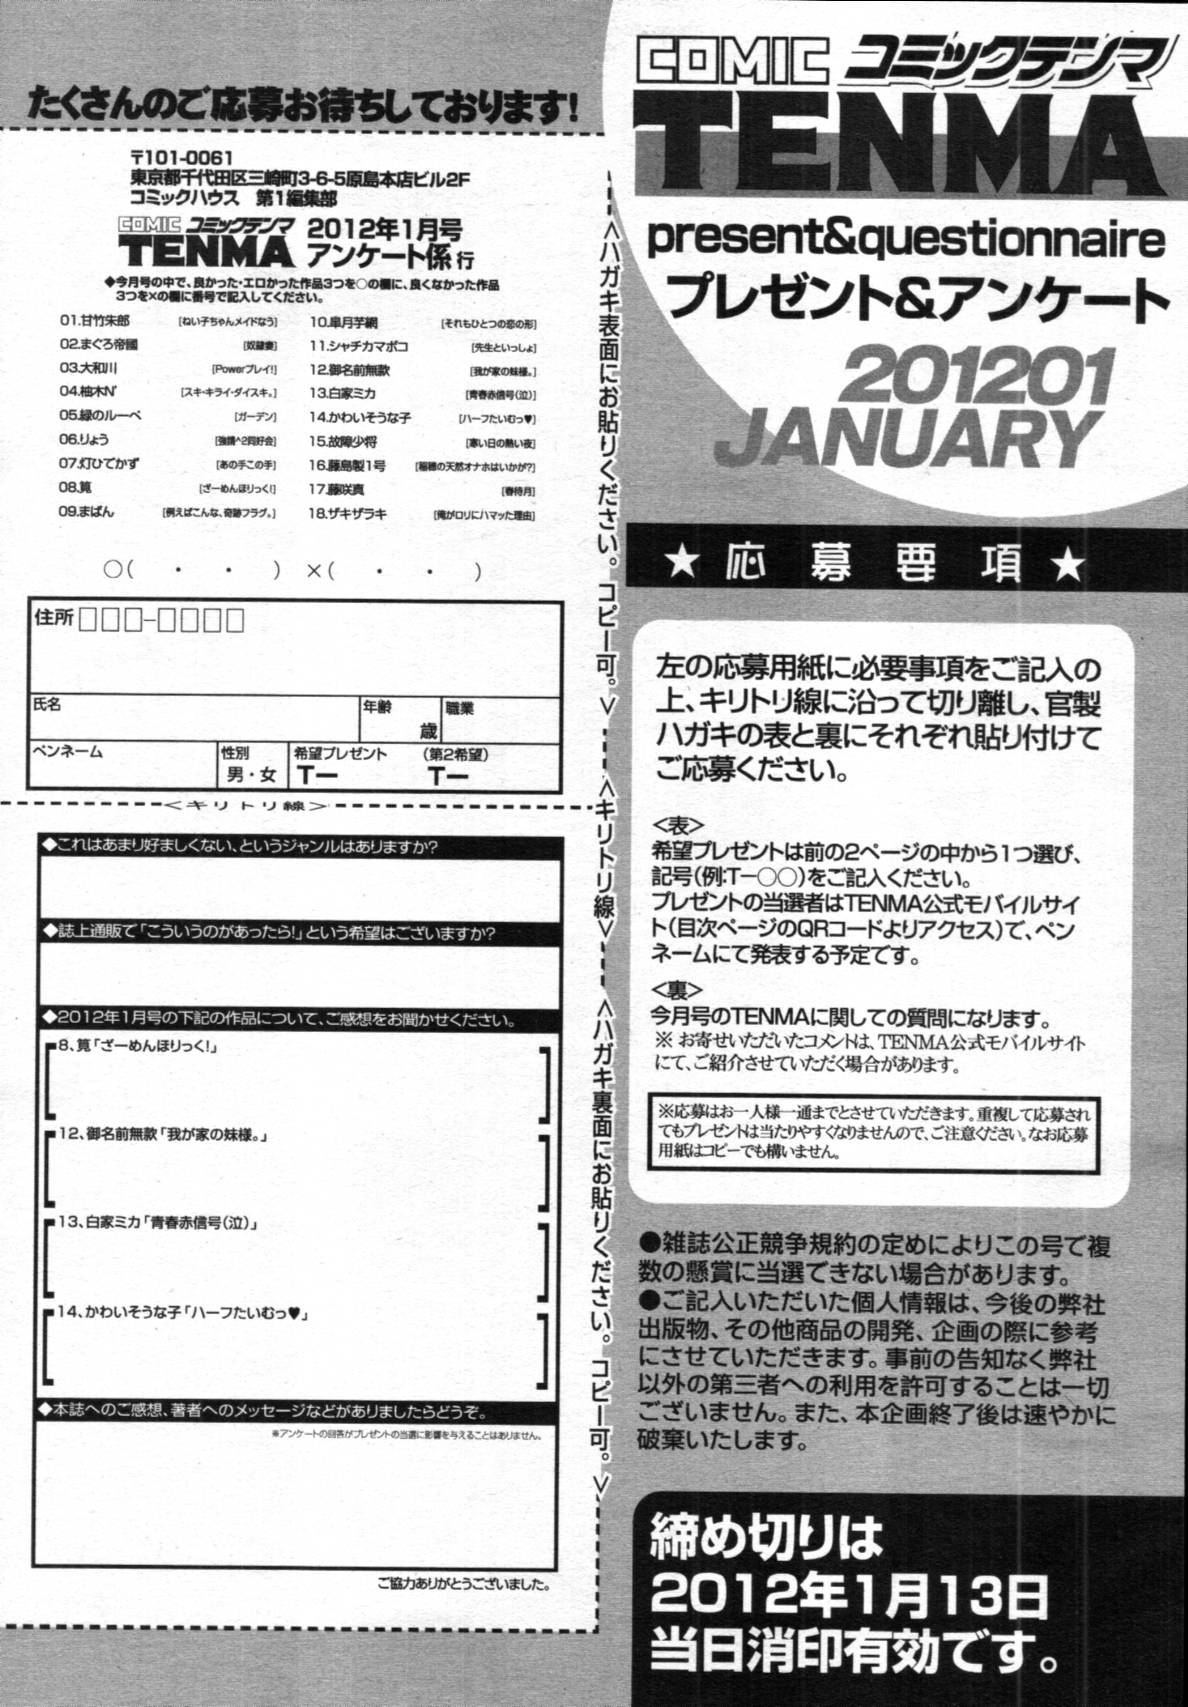 たくさんのご応募お待ちしております!
〒101-0061
東京都千代田区三崎町3-6-5原島本店ビル2F
コミックハウス　第1編集部
COMIC コミックテンマ
TENMA
2012年1月号
アンケート係 行
◆今月号の中で、良かった・エロかった作品3つを○の欄に、良くなかった作品
3つを×の欄に番号で記入してください。
01.甘竹朱郎 [ねい子ちゃんメイドなう]
02.まぐろ帝國 [奴隷妻]
03.大和川 [Powerプレイ!]
04.柚木N' [スキ・キライ・ダイスキ。]
05.緑のルーペ [ガーデン]
06.りょう [強請^2同好会]
07.灯ひでかず [あの手この手]
08.筧 [ざーめんほりっく!]
09.まばん [例えばこんな、奇跡フラグ。]
10.皐月芋網 [それもひとつの恋の形]
11.シャチカマボコ [先生といっしょ]
12.御名前無款 [我が家の妹様。]
13.白家ミカ [青春赤信号(泣)]
14.かわいそうな子 [ハーフたいむっ♥]
15.故障少将 [寒い日の熱い夜]
16.藤島製1号 [稲穂の天然オナホはいかが?]
17.藤咲真 [春待月]
18.ザキザラキ [俺がロリにハマッた理由]
○(　・　・　)　×(　・　・　)
住所 □□□-□□□□
氏名
年齢
歳
職業
ペンネーム
性別
男・女
希望プレゼント　(第2希望)
T−　T−
<キリトリ線>
◆これはあまり好ましくない、というジャンルはありますか?
◆誌上通販で「こういうのがあったら!」という希望はございますか?
◆2012年1月号の下記の作品について、ご感想をお聞かせください。
8、筧「ざーめんほりっく!」
12、御名前無款「我が家の妹様。」
13、白家ミカ「青春赤信号(泣)」
14、かわいそうな子「ハーフたいむっ♥」
◆本誌へのご感想、著者へのメッセージなどがありましたらどうぞ。
※アンケートの回答がプレゼントの当選に影響を与えることはありません。
ご協力ありがとうございました。
<ハガキ表面にお貼りください。コピー可。>
<キリトリ線>
<ハガキ裏面にお貼りください。コピー可。>
COMIC コミックテンマ
TENMA
present&questionnaire
プレゼント&アンケート
201201
JANUARY
★応募要項★
左の応募用紙に必要事項をご記入の
上、キリトリ線に沿って切り離し、官製
ハガキの表と裏にそれぞれ貼り付けて
ご応募ください。
<表>
希望プレゼントは前の2ページの中から1つ選び、
記号(例:T−○○)をご記入ください。
プレゼントの当選者はTENMA公式モバイルサイ
ト(目次ページのQRコードよりアクセス)で、ペン
ネームにて発表する予定です。
<裏>
今月号のTENMAに関しての質問になります。
※ お寄せいただいたコメントは、TENMA公式モバイルサイト
にて、ご紹介させていただく場合があります。
※応募はお一人様一通までとさせていただきます。重複して応募され
てもプレゼントは当たりやすくなりませんので、ご注意ください。なお応募
用紙はコピーでも構いません。
●雑誌公正競争規約の定めによりこの号で複
数の懸賞に当選できない場合があります。
●ご記入いただいた個人情報は、今後の弊社
出版物、その他商品の開発、企画の際に参考
にさせていただきます。事前の告知なく弊社
以外の第三者への利用を許可することは一切
ございません。また、本企画終了後は速やかに
破棄いたします。
締め切りは
2012年1月13日
当日消印有効です。